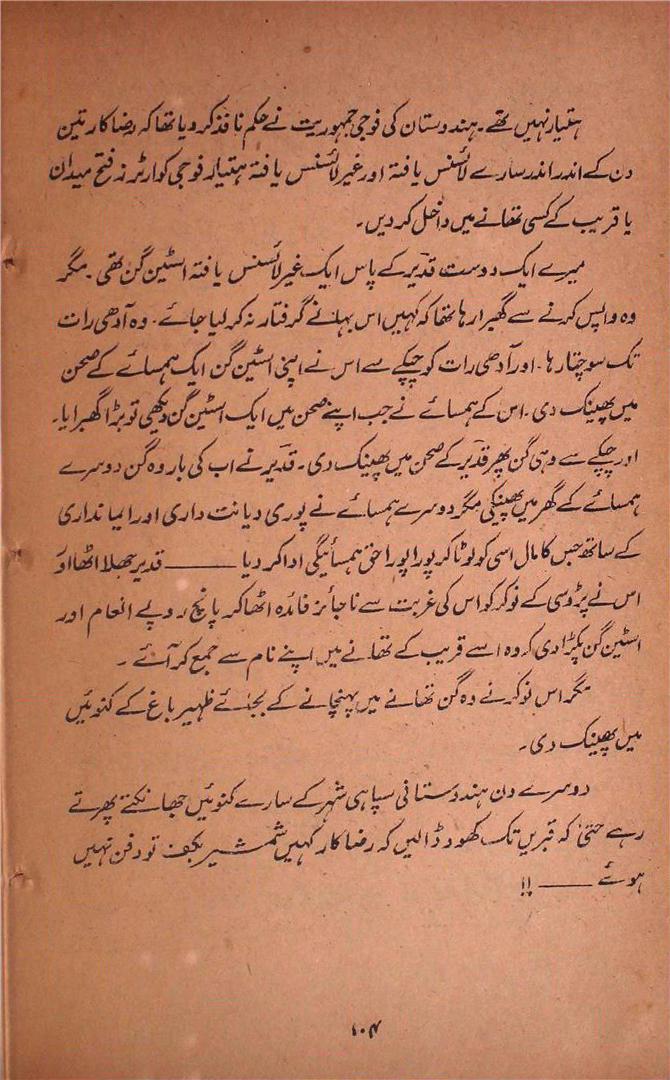 ہتیار نہیں تھے۔ ہندوستان کی فوجی جمہوریت نے حکم نافذ کر دیا تھا کہ رضاکار تین
دن کے اندر اندر سارے لائسنس یافتہ اور غیر لائسنس یافتہ ہتیار فوجی کوارٹرز فتح میدان
یا قریب کے کسی تھانے میں داخل کر دیں۔
میرے ایک دوست قدیر کے پاس ایک غیر لائسنس یافتہ اسٹین گن تھی۔ مگر
وہ واپس کرنے سے گھبرا رہا تھا کہ کہیں اس بہانے گرفتار نہ کر لیا جائے۔ وہ آدھی رات
تک سوچتا رہا۔ اور آدھی رات کو چپکے سے اس نے اپنی اسٹین گن ایک ہمسائے کے صحن
میں پھینک دی۔ اس کے ہمسائے نے جب اپنے صحن میں ایک اسٹین گن دیکھی تو بڑا گھبرایا۔
اور چپکے سے وہی گن پھر قدیر کے صحن میں پھینک دی۔ قدیر نے اب کی بار وہ گن دوسرے
ہمسائے کے گھر میں پھینکی مگر دوسرے ہمسائے نے پوری دیانت داری اور ایمانداری
کے ساتھ جس کا مال اسی کو لوٹا کر پورا پورا حق ہمسائیگی ادا کر دیا ——— قدیر جھلا اٹھا اور
اس نے پڑوسی کے نوکر کو اس کی غربت سے ناجائز فائدہ اٹھا کر پانچ روپے انعام اور
اسٹین گن پکڑا دی کہ وہ اسے قریب کے تھانے میں اپنے نام سے جمع کر آئے۔
مگر اس نوکر نے وہ گن تھانے میں پہنچانے کے بجائے ظہیر باغ کے کنوئیں
میں پھینک دی۔
دوسرے دن ہندوستانی سپاہی شہر کے سارے کنوئیں جھانکتے پھرتے
رہے حتیٰ کہ قبریں تک کھود ڈالیں کہ رضاکار کہیں شمشیر بکف تو دفن نہیں
ہوئے ——— !!
۱۰۴